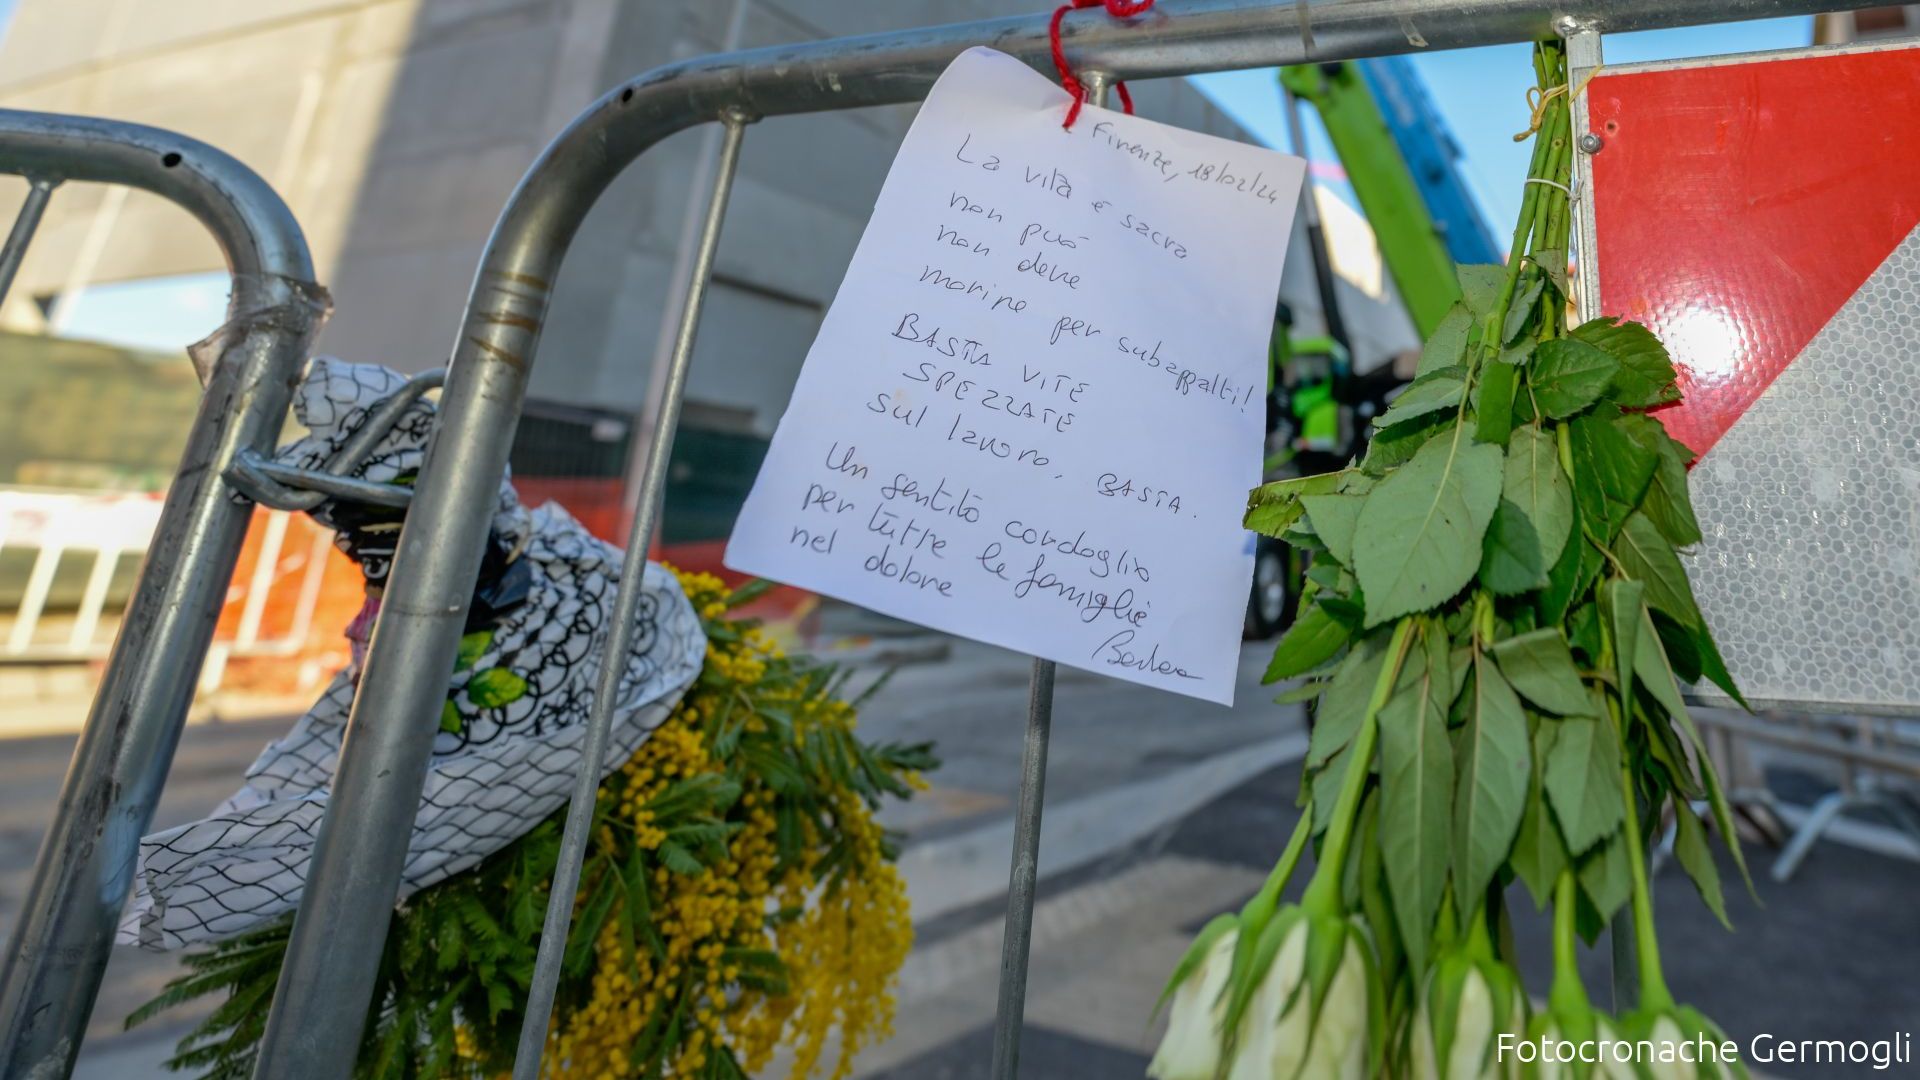 Firenze, 18/02/24
La vita è sacra
non può
non deve
morire per subappalti!
BASTA VITE
SPEZZATE
sul lavoro, BASTA.
Un sentito cordoglio
per tutte le famiglie
nel dolore
Barbara
Fotocronache Germogli